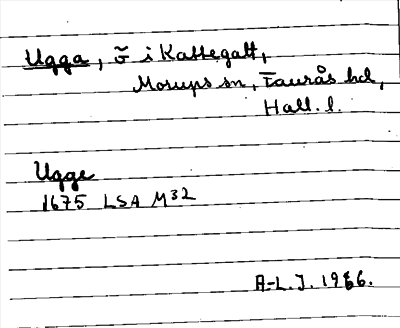 Ugga, ö i Kattegatt,
Morups sn, Faurås hd,
Hall. l.
Ugge
1675 LSA M32
A-L. J. 1966.